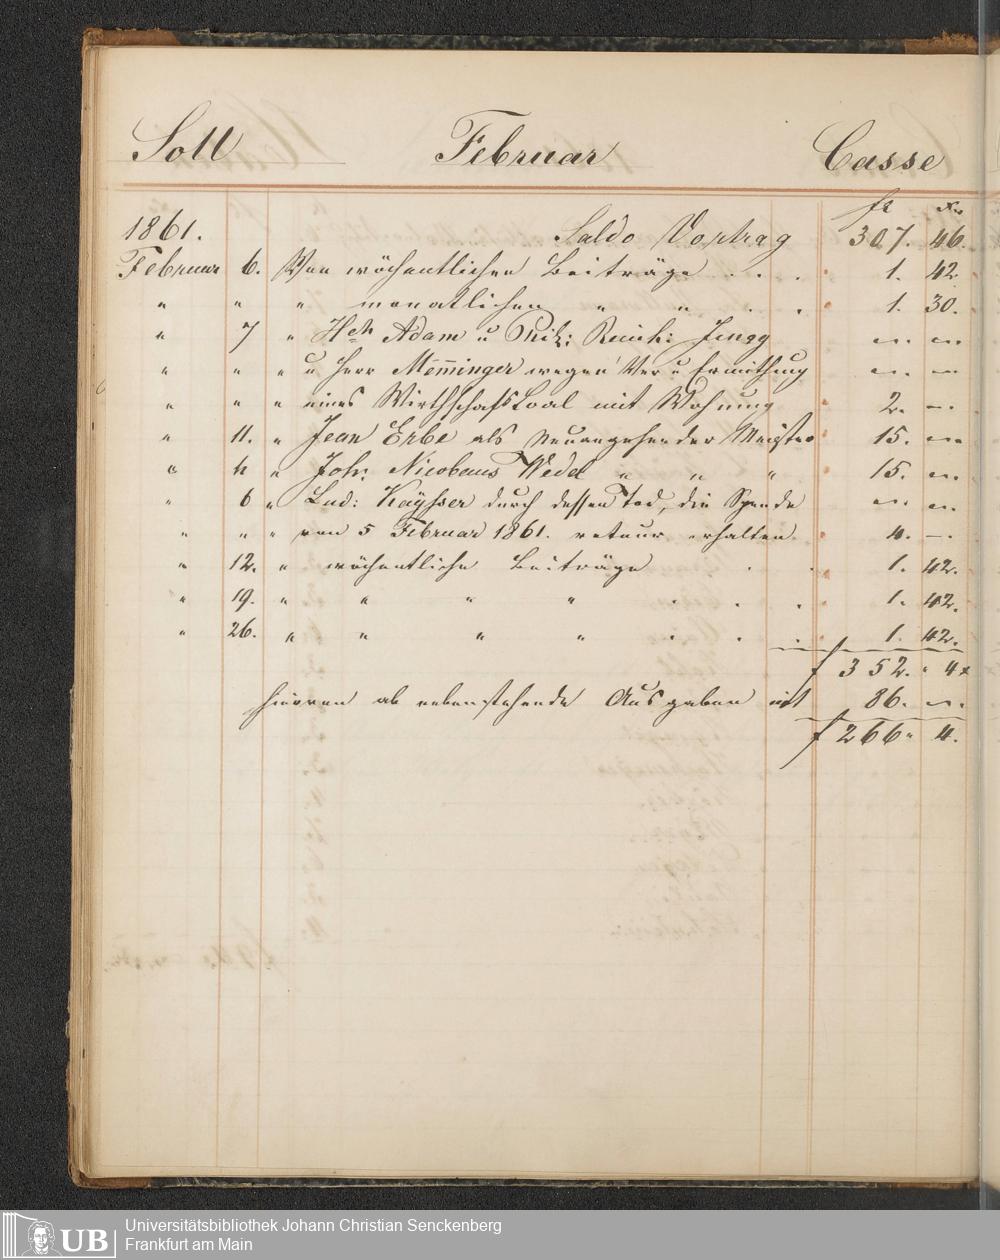 Soll Februar Casse
fl xr
1861. Saldo Vortrag 307. 46.
Februar 6. Von wöchentlichen Beiträge . . . 1. 42
" " " monatlichen " " . . 1. 30.
" 7 " Hch Adam u Phil: Reinh: "" ""
" " " u Herr Mem̄inger wegen Ver u Ermithung "" —
" " " eines Wirthschafsloal mit Wohnung 2. —.
" 11. " Jean Erbe als Neuangehender Meister 15. ""
" 11 " Joh: Nicolaus Wedel " " " 15. "".
" 6 " Lud: Kaÿsser durch dessen Tod, die Spende "" "".
" " " von 5 Februar 1861. retour erhalten. 4. —.
" 12. " wöchentliche Beiträge . . 1. 42.
" 19. " " " " . . . 1. 42.
" 26. " " " " . . . 1. 42.
f 352. " 4x
Hiervon ab nebenstehende Ausgaben mit 86. "".
f 266 " 4.
UB Universitätsbibliothek Johann Christian Senckenberg
Frankfurt am Main